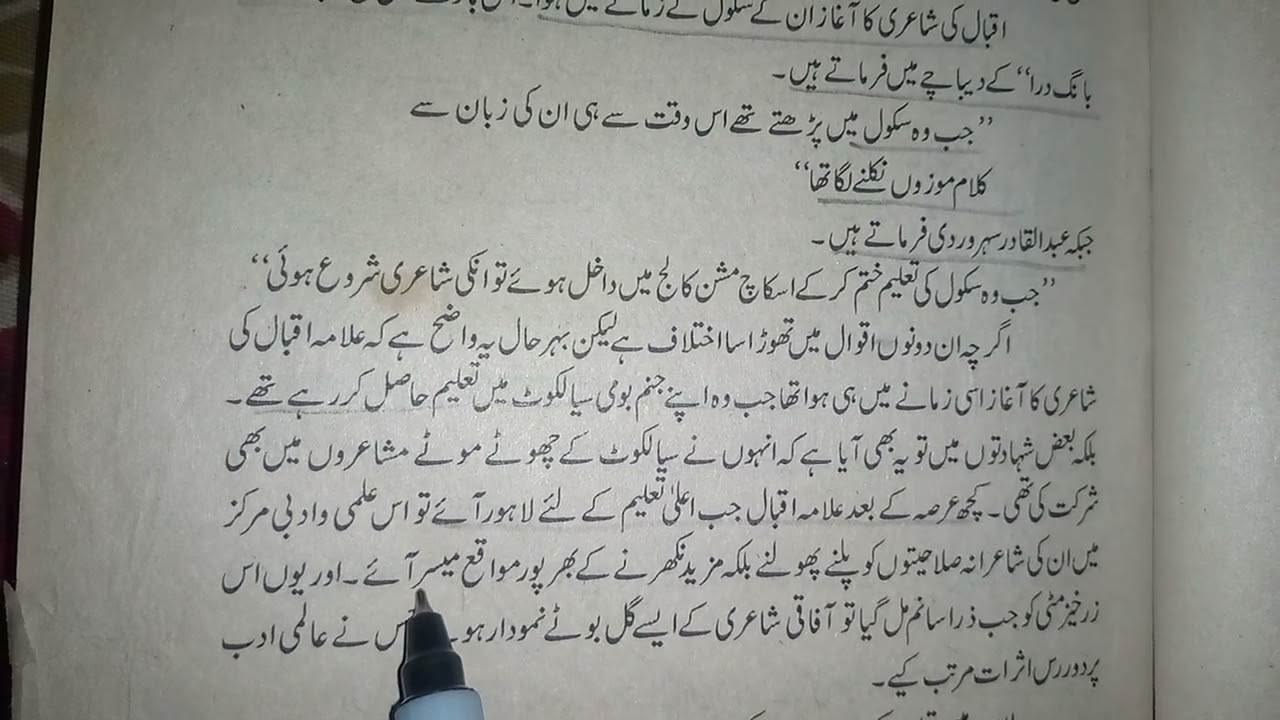 اقبال کی شاعری کا آغاز ان کے سکول کے زمانے میں ہوا۔
بانگ درا‘‘ کے دیباچے میں فرماتے ہیں۔
’’جب وہ سکول میں پڑھتے تھے اس وقت سے ہی ان کی زبان سے
کلام موزوں نکلنے لگا تھا‘‘
جبکہ عبدالقادر سہروردی فرماتے ہیں۔
’’جب وہ سکول کی تعلیم ختم کر کے اسکاچ مشن کالج میں داخل ہوئے تو انکی شاعری شروع ہوئی‘‘
اگرچہ ان دونوں اقوال میں تھوڑا سا اختلاف ہے لیکن بہرحال یہ واضح ہے کہ علامہ اقبال کی
شاعری کا آغاز اسی زمانے میں ہی ہوا تھا جب وہ اپنے جنم بومی سیالکوٹ میں تعلیم حاصل کر رہے تھے۔
بلکہ بعض شہادتوں میں تو یہ بھی آیا ہے کہ انہوں نے سیالکوٹ کے چھوٹے موٹے مشاعروں میں بھی
شرکت کی تھی۔ کچھ عرصہ کے بعد علامہ اقبال جب اعلیٰ تعلیم کے لئے لاہور آئے تو اس علمی و ادبی مرکز
میں ان کی شاعرانہ صلاحیتوں کو پلنے پھولنے بلکہ مزید نکھرنے کے بھرپور مواقع میسر آئے۔ اور یوں اس
زرخیز مٹی کو جب ذرا سا نم مل گیا تو آفاقی شاعری کے ایسے گل بوٹے نمودار نے عالمی ادب
پر دوررس اثرات مرتب کیے۔